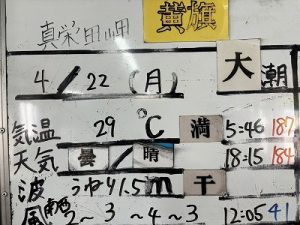 真栄田岬 黄旗
4/22(月) 大潮
気温 29℃ 満 5:46 187
天気 曇/晴 18:15 184
波 うねり1.5m 干
風 南西 2～3～4～3 12:05 41